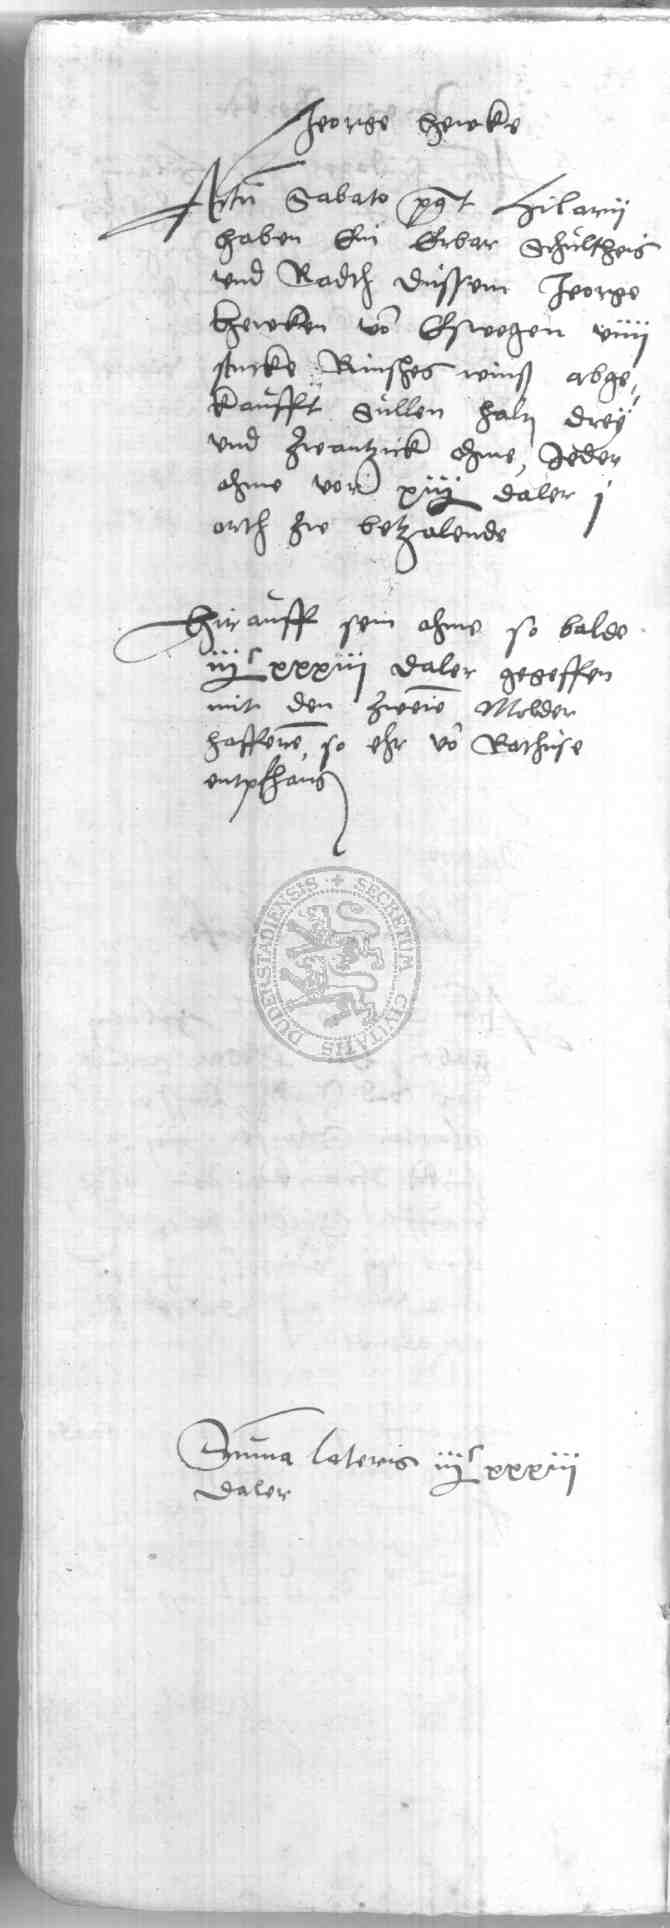 Jeorge Hewke
Actū Sabato post Hilarij
haben Ein Erbar Schultheis
vnd Radth dussem Jeorge
Hewken vō Eswegen viiij
stucke Rinsches winß abge,
kaufft sullen haltē dreÿ
vnd zwantzick ohme, Jeder
ohme vor xiiij daler j
orth zu betzalende
Hirauff sein ohme so balde
iiijC xxxiij daler gegeffen
mit den zweiē Molder
hafferē so ehr vō Rathuse
entpfhang
SECRETUM CIVITATIS DUDERSTADIENSIS
Summa lateris iiijC xxxiij
daler